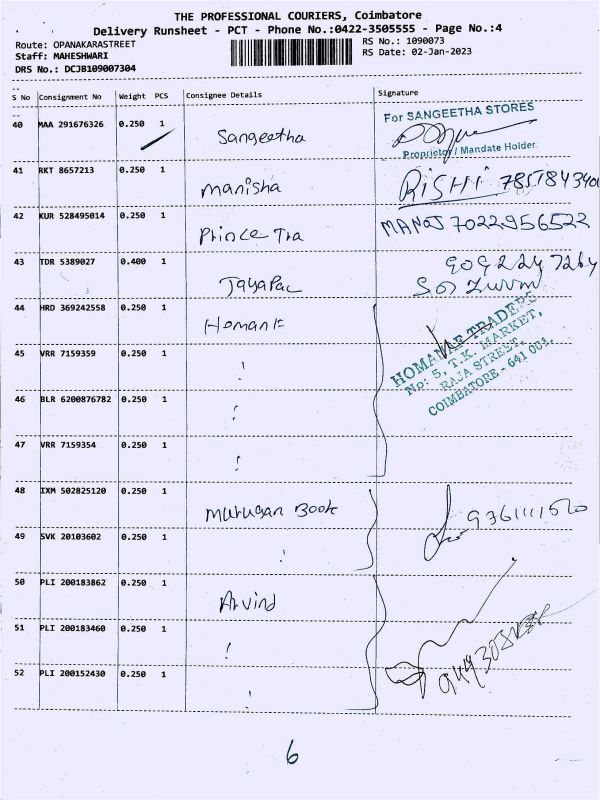 THE PROFESSIONAL COURIERS, Coimbatore
Delivery Runsheet - PCT - Phone No.:0422-3505555 - Page No.:4
Route: OPANAKARASTREET
RS No.: 1090073
Staff: MAHESHWARI
RS Date: 02-Jan-2023
DRS No.: DCJB109007304
S No Consignment No Weight PCS Consignee Details Signature
For SANGEETHA STORES
40 MAA 291676326 0.250 1 Sangeetha
Proprietor / Mandate Holder
41 RKT 8657213 0.250 1 Manisha RISHI
42 KUR 528495014 0.250 1 Prince Tra MANOJ 7022956522
43 TDR 5389027 0.400 1 JayaPac
44 HRD 369242558 0.250 1 Homank
HOMANK TRADERS
No: 5, T.K. MARKET,
RAJA STREET,
COIMBATORE - 641 001.
45 VRR 7159359 0.250 1
46 BLR 6200876782 0.250 1
47 VRR 7159354 0.250 1
48 IXM 502825120 0.250 1 Murugan Book
49 SVK 20103602 0.250 1
50 PLI 200183862 0.250 1 Arvind
51 PLI 200183460 0.250 1
52 PLI 200152430 0.250 1
6